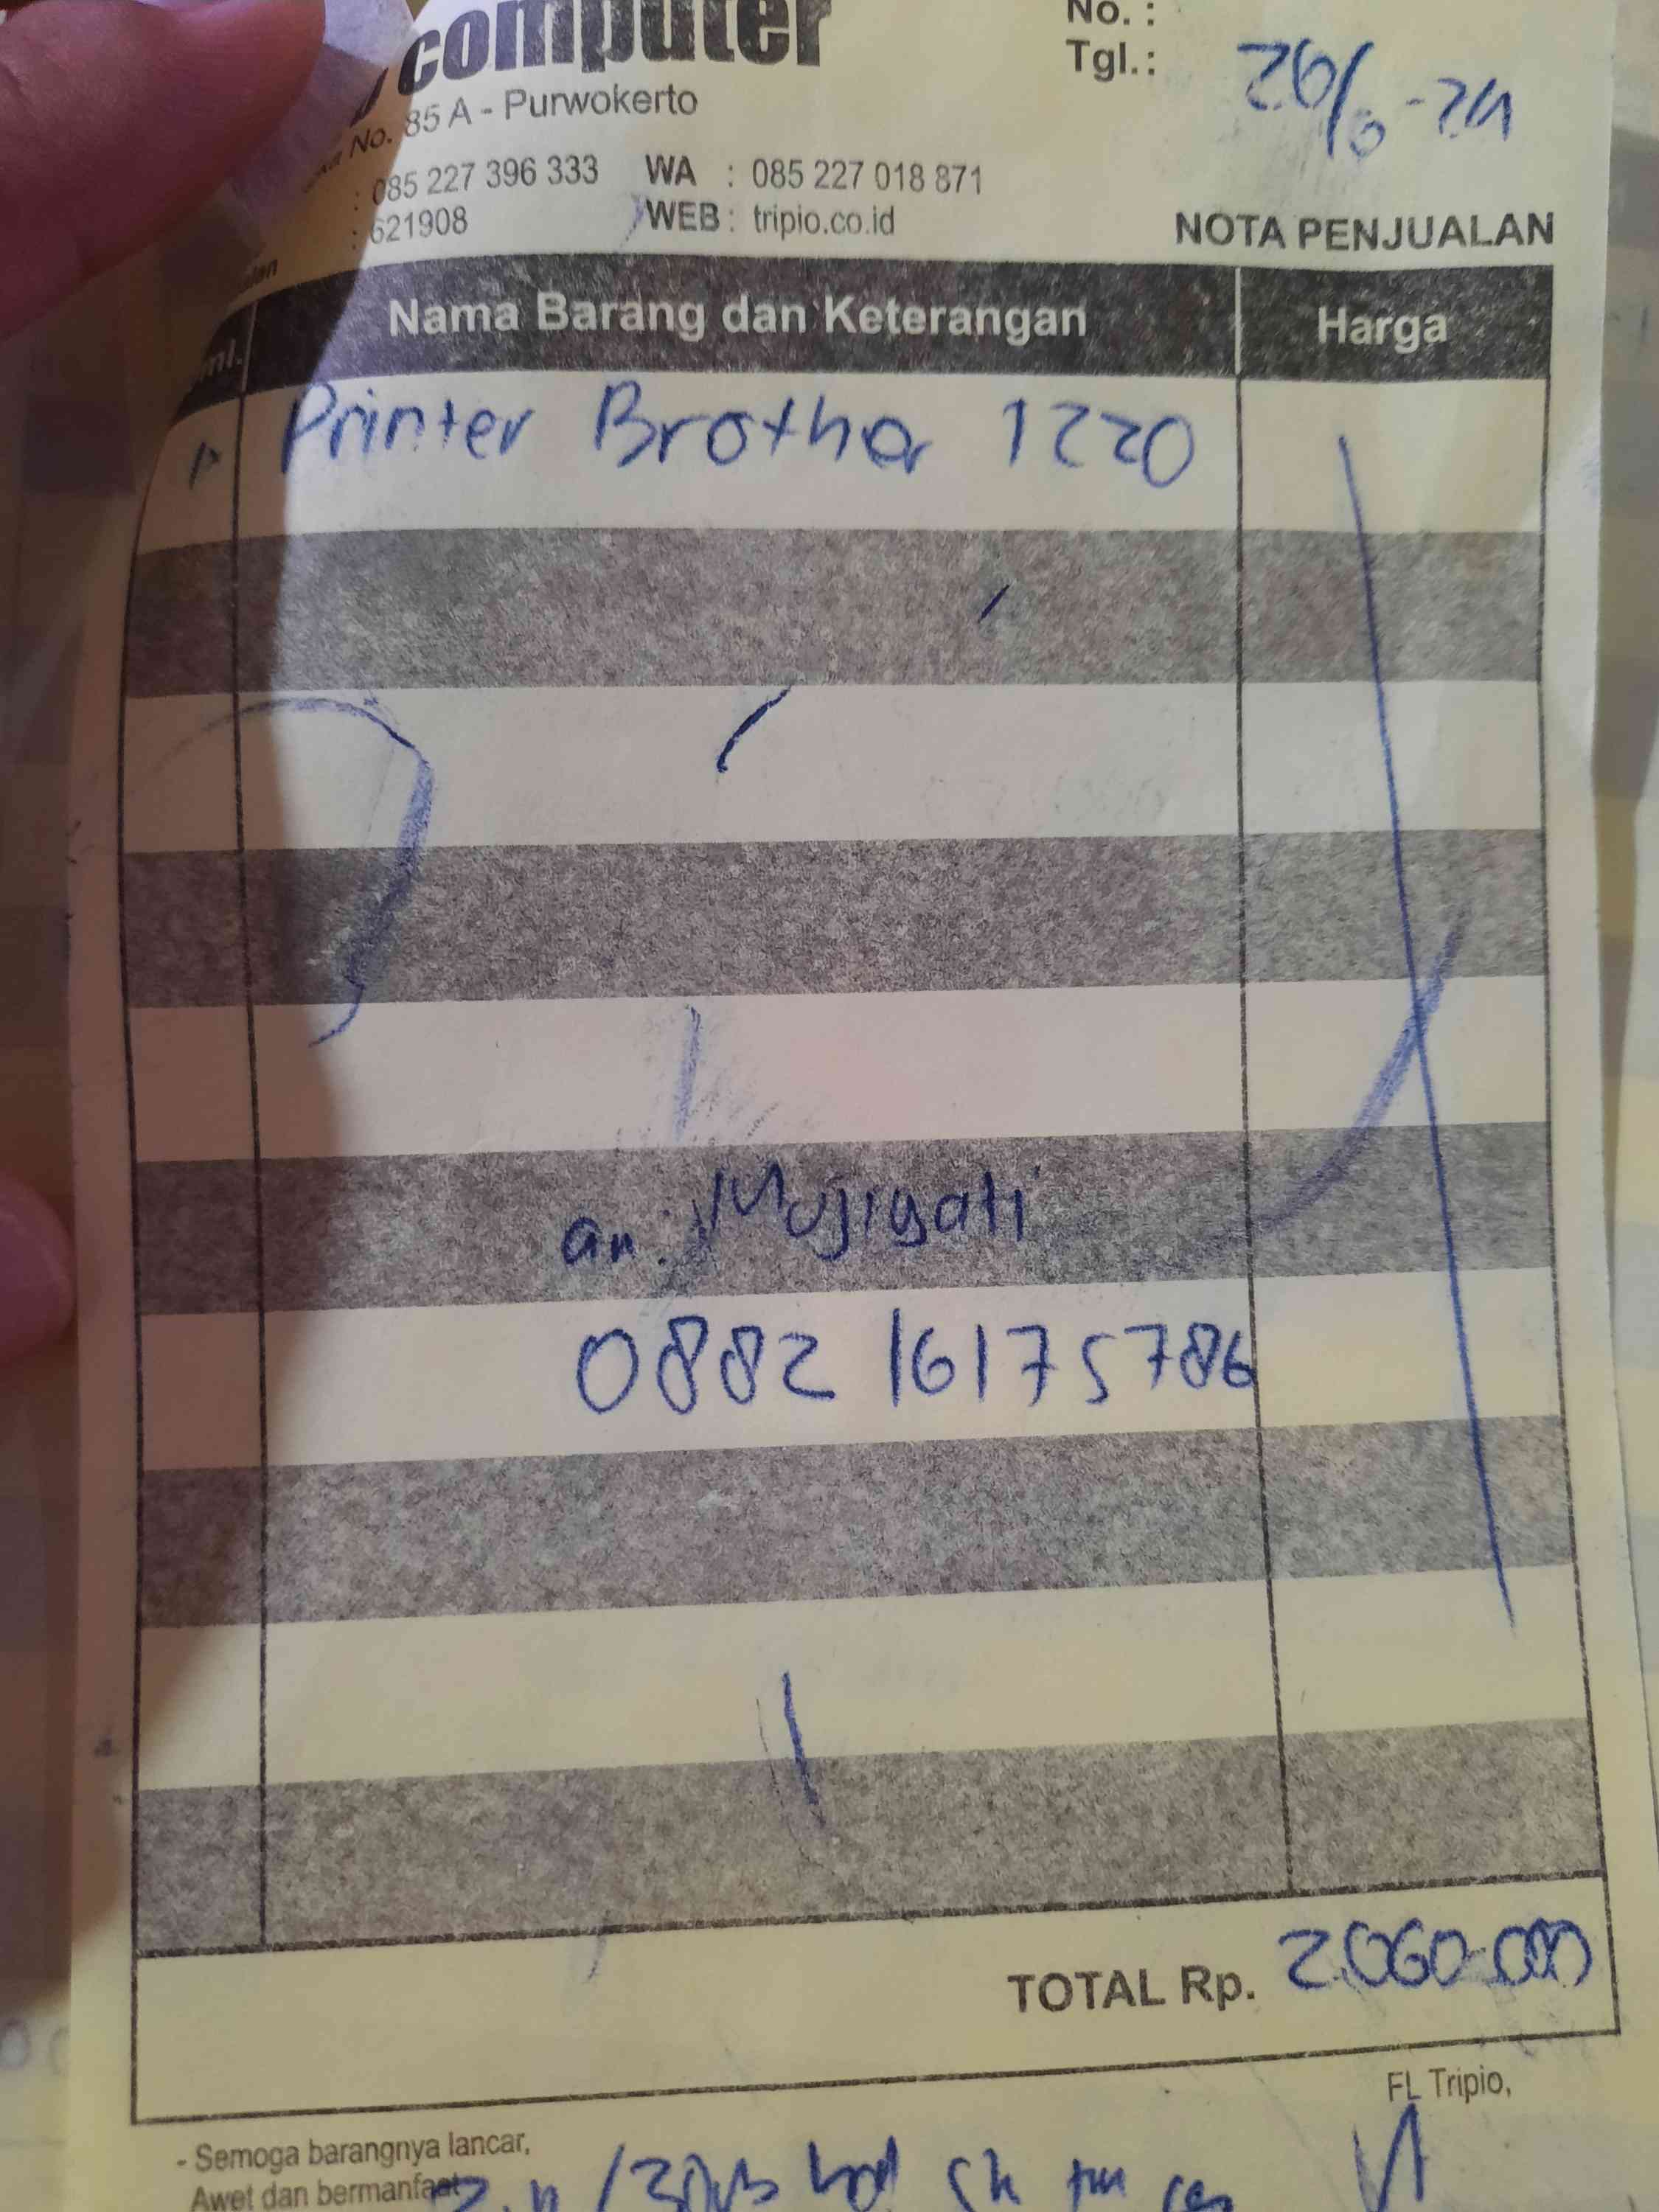 computer
No. :
Tgl.:
No. 85 A - Purwokerto
: 085 227 396 333 WA : 085 227 018 871
: 621908 WEB : tripio.co.id
NOTA PENJUALAN
Nama Barang dan Keterangan Harga
Printer Brother 1220
an. Mujiyati
0882 16175786
TOTAL Rp. 2.060.000
FL Tripio,
- Semoga barangnya lancar,
Awet dan bermanfaat